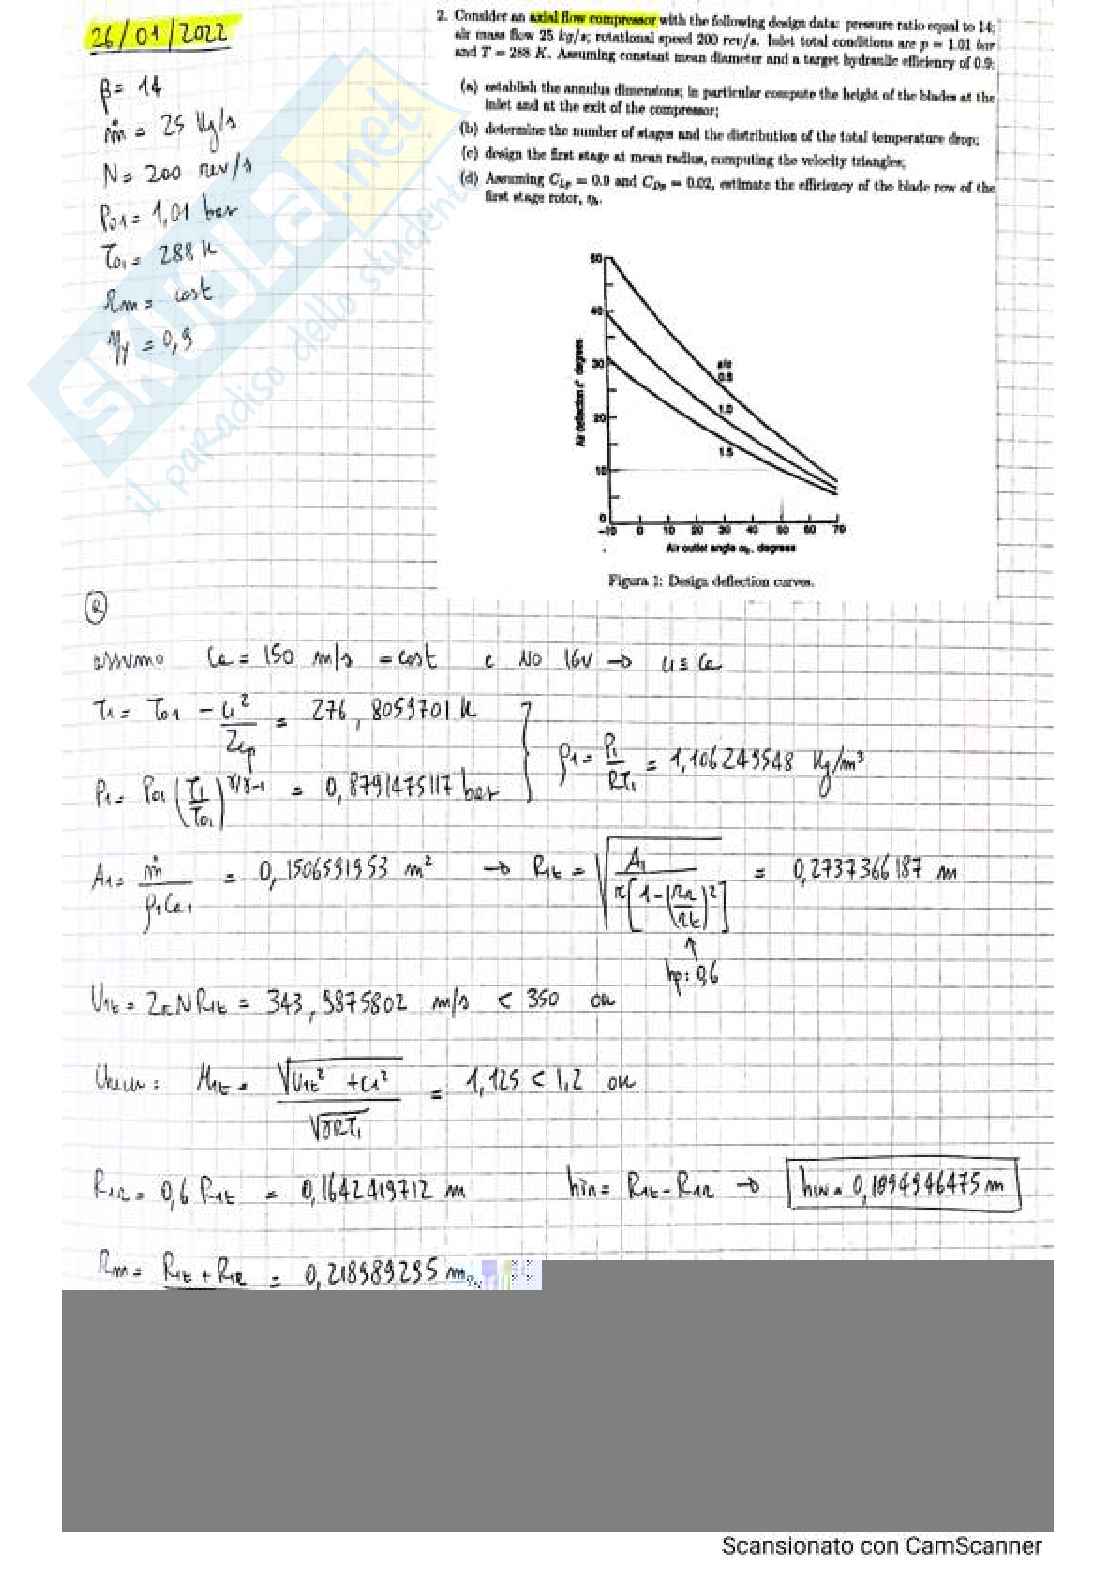 26/01/2022
β= 14
ṁ = 25 Kg/s
N= 200 rev/s
P01= 1,01 bar
T01= 288 K
Rm= cost
ηy = 0,9
2. Consider an axial flow compressor with the following design data: pressure ratio equal to 14;
air mass flow 25 kg/s; rotational speed 200 rev/s. Inlet total conditions are p = 1.01 bar
and T = 288 K. Assuming constant mean diameter and a target hydraulic efficiency of 0.9:
(a) establish the annulus dimensions; in particular compute the height of the blades at the
inlet and at the exit of the compressor;
(b) determine the number of stages and the distribution of the total temperature drop;
(c) design the first stage at mean radius, computing the velocity triangles;
(d) Assuming CLp = 0.9 and CDp = 0.02, estimate the efficiency of the blade row of the
first stage rotor, ηb.
Air deflection ε* degrees
50
40
30
20
10
0
s/c
0.5
1.0
1.5
-10 0 10 20 30 40 50 60 70
Air outlet angle α2, degrees
Figura 1: Design deflection curves.
SKUOLA.net
il paradiso dello studente
assumo Ca = 150 m/s = cost e NO IGV → c1 ≡ Ca
T1= T01 - c1²/2cp = 276,8059701 K
P1= P01 (T1/T01)^γ/γ-1 = 0,8791475117 bar
ρ1= P1/RT1 = 1,106249548 Kg/m³
A1= ṁ/ρ1Ca1 = 0,1506591953 m² → R1t = √A1/π[1-(Rr/Rt)²] = 0,2737366187 m
hp: 0,6
U1t= 2πNR1t = 343,9875802 m/s < 350 ok
Check: M1t = √U1t² + c1²/√γRT1 = 1,125 < 1,2 ok
R1r= 0,6 R1t = 0,1642419712 m hin= R1t - R1r → hin= 0,1094946475 m
Rm= R1t + R1r = 0,218989295 m
Scansionato con CamScanner